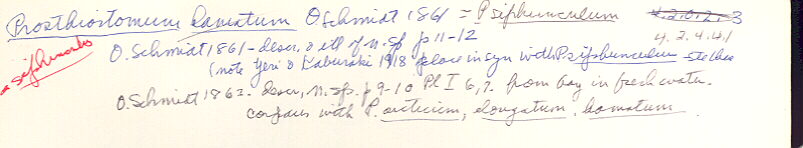 Prosthiostomum hamatum O Schmidt 1861 = P siphunculum 4.2.0.2.3
4.2.4.41
O. Schmidt 1861 - descr. & ill of n. sp p 11-12
(note Yeri & Kaburaki 1918 place in syn with P. siphunculus
O. Schmidt 1862 - descr, n. sp. p 9-10 Pl I 6, 7. from bay in fresh water.
compares with P. arcticum, elongatum, hamatum